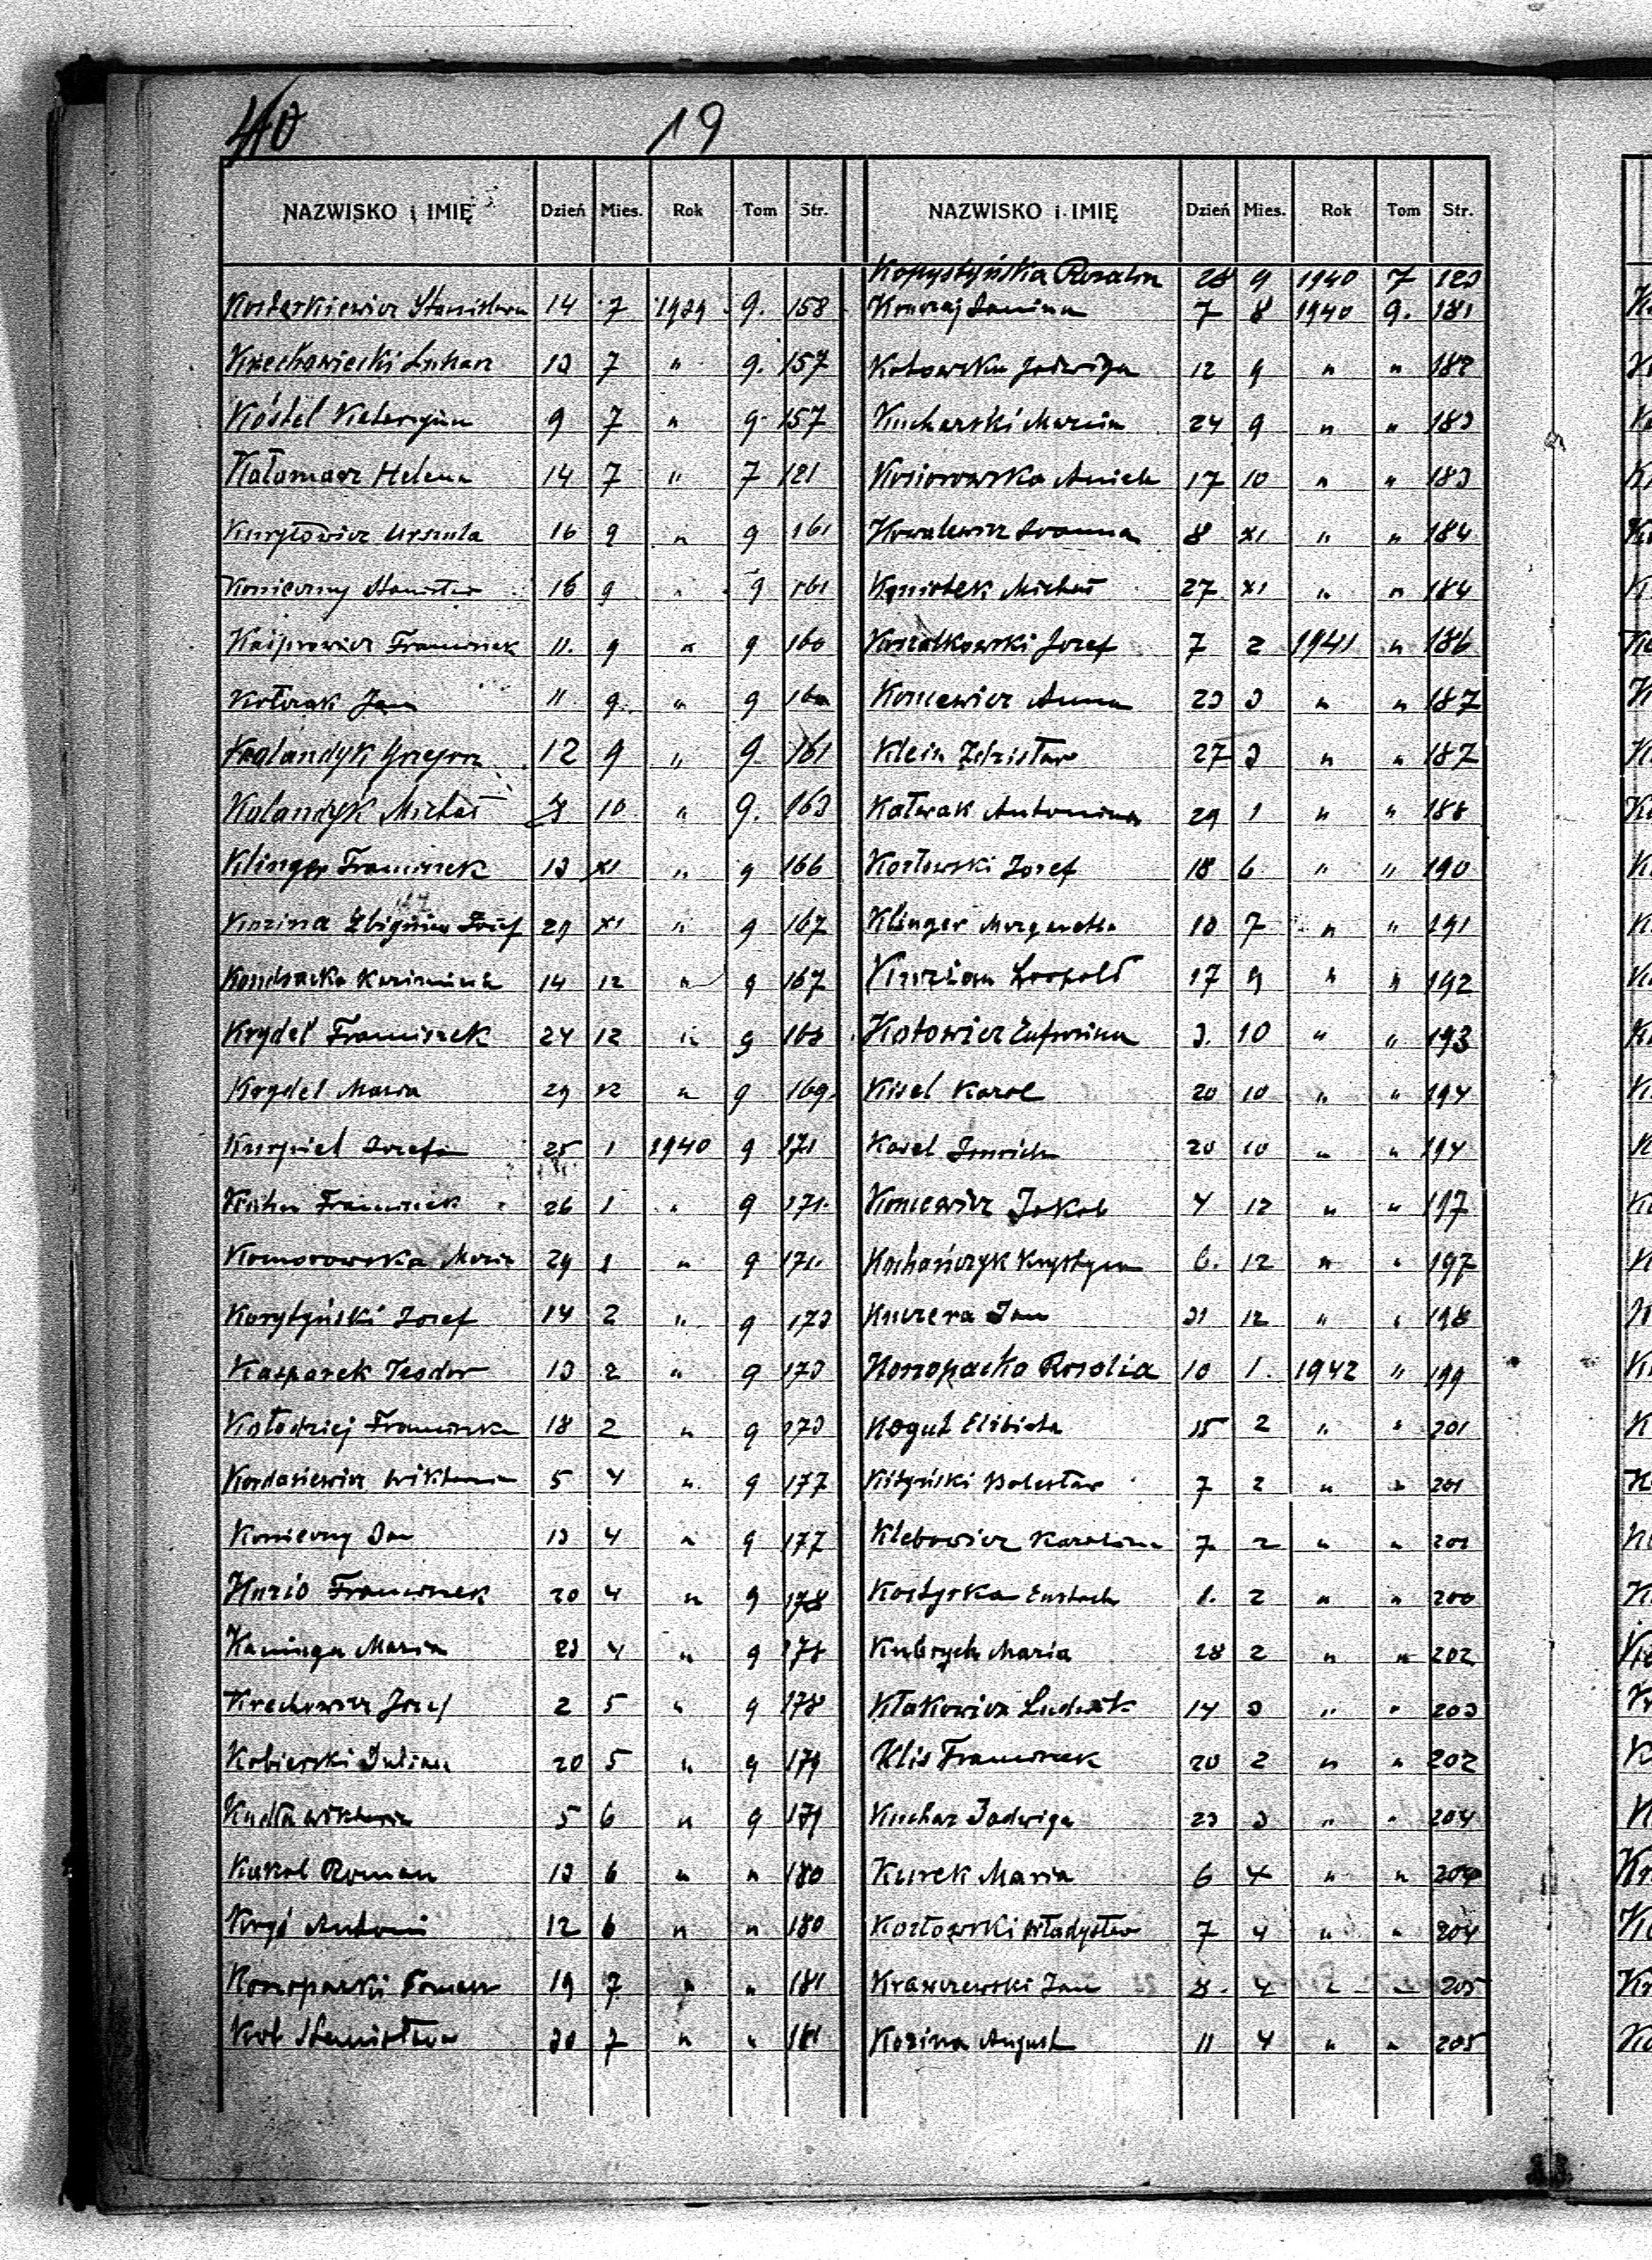 40 19
NAZWISKO i IMIĘ Dzień Mies. Rok Tom Str.
Kostarkiewicz Stanisława 14 7 1939 9. 158
Krzechowiecki Łukasz 13 7 " 9. 157
Köstel Katarzyna 9 7 " 9 157
Kałamarz Helena 14 7 " 7 121
Kuryłowicz Urszula 16 9 " 9 161
Konieczny Stanisław 16 9 " 9 161
Kasprowicz Franciszek 11. 9 " 9 160
Kołczak Jan 11 9 " 9 160
Kaglandyk Grzegorz 12 9 " 9 161
Kalandyk Michał 10 " 9. 163
Klinger Franciszek 13 XI " 9 166
Kozina Zbigniew Józef 29 XI " 9 167
Kondracka Kazimiera 14 12 " 9 167
Krydel Franciszek 24 12 " 9 168
Krydel Maria 29 12 " 9 169.
Kurpiel Józefa 25 1 1940 9 171
Franciszek 26 1 " 9 171.
Komorowska Maria 29 1 " 9 171.
Korytyński Józef 14 2 " 9 173
Kasparek Teodor 13 2 " 9 173
Kołodziej Franciszka 18 2 " 9 173
Kordasiewicz Wiktoria 5 4 " 9 177
Konieczny Jan 13 4 " 9 177
Kuzio Franciszek 20 4 " 9 178
Kaninga Maria 23 4 " 9 178
Krechowicz Józef 2 5 " 9 178
Kobierski Julian 20 5 " 9 179
Kudła Wiktoria 5 6 " 9 179
Kukral Roman 13 6 " " 180
Kryś Antoni 12 6 " " 180
Konopacki Tomasz 19 7 " " 181
Krol Stanisława 30 7 " " 181
NAZWISKO i IMIĘ Dzień Mies. Rok Tom Str.
Kopystyńska Rozalia 28 9 1940 7 123
Janina 7 8 1940 9. 181
Kotowska Jadwiga 12 9 " " 182
Kucharski Marcin 24 9 " " 183
Kosiorowska Aniela 17 10 " " 183
Kowalewicz Joanna 8 XI " " 184
Kmiotek Michał 27 XI " " 184
Koziołkowski Józef 7 2 1941 " 186
Koncewicz Anna 23 3 " " 187
Klein Zdzisław 27 3 " " 187
Kałwak Antonina 29 1 " " 188
Kozłowski Józef 18 6 " " 190
Klinger Margaretha 10 7 " " 191
Leopold 17 9 " " 192
Kotowicz Eufrozina 3. 10 " " 193
Kisel Karol 20 10 " " 194
Kosel Imrich 20 10 " " 194
Koncewicz Jakob 4 12 " " 197
Kochańczyk Krystyna 6. 12 " " 197
Kuczera Jan 31 12 " " 198
Konopacka Rozalia 10 1. 1942 " 199
Kogut Elżbieta 15 2 " " 201
Kiżyński Bolesław 7 2 " " 201
Klebowicz Karolina 7 2 " " 201
Kostyrka Eustach 1. 2 " " 200
Kubrych Maria 28 2 " " 202
Kłakowicz Ludwik 14 3 " " 203
Klis Franciszek 20 2 " " 202
Kuchar Jadwiga 23 3 " " 204
Kurek Maria 6 4 " " 204
Kozłowski Władysław 7 4 " " 204
Krawczewski Jan 8. 4 " " 205
Kozina August 11 4 " " 205